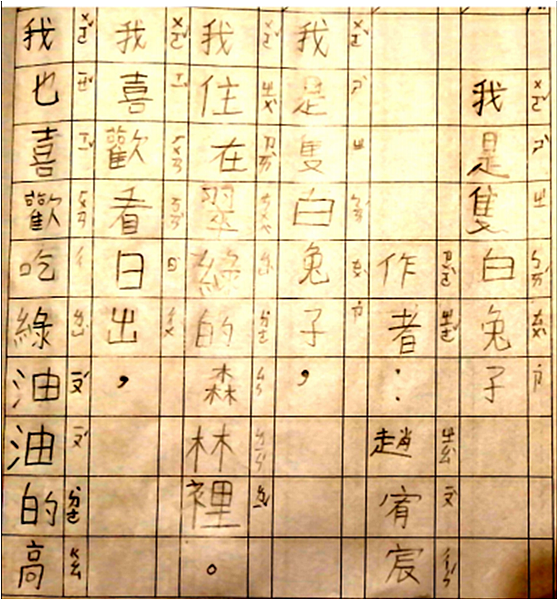 我是隻白兔子
作者：趙宥宸
我是隻白兔子，
我住在翠綠的森林裡。
我喜歡看日出，
我也喜歡吃綠油油的高